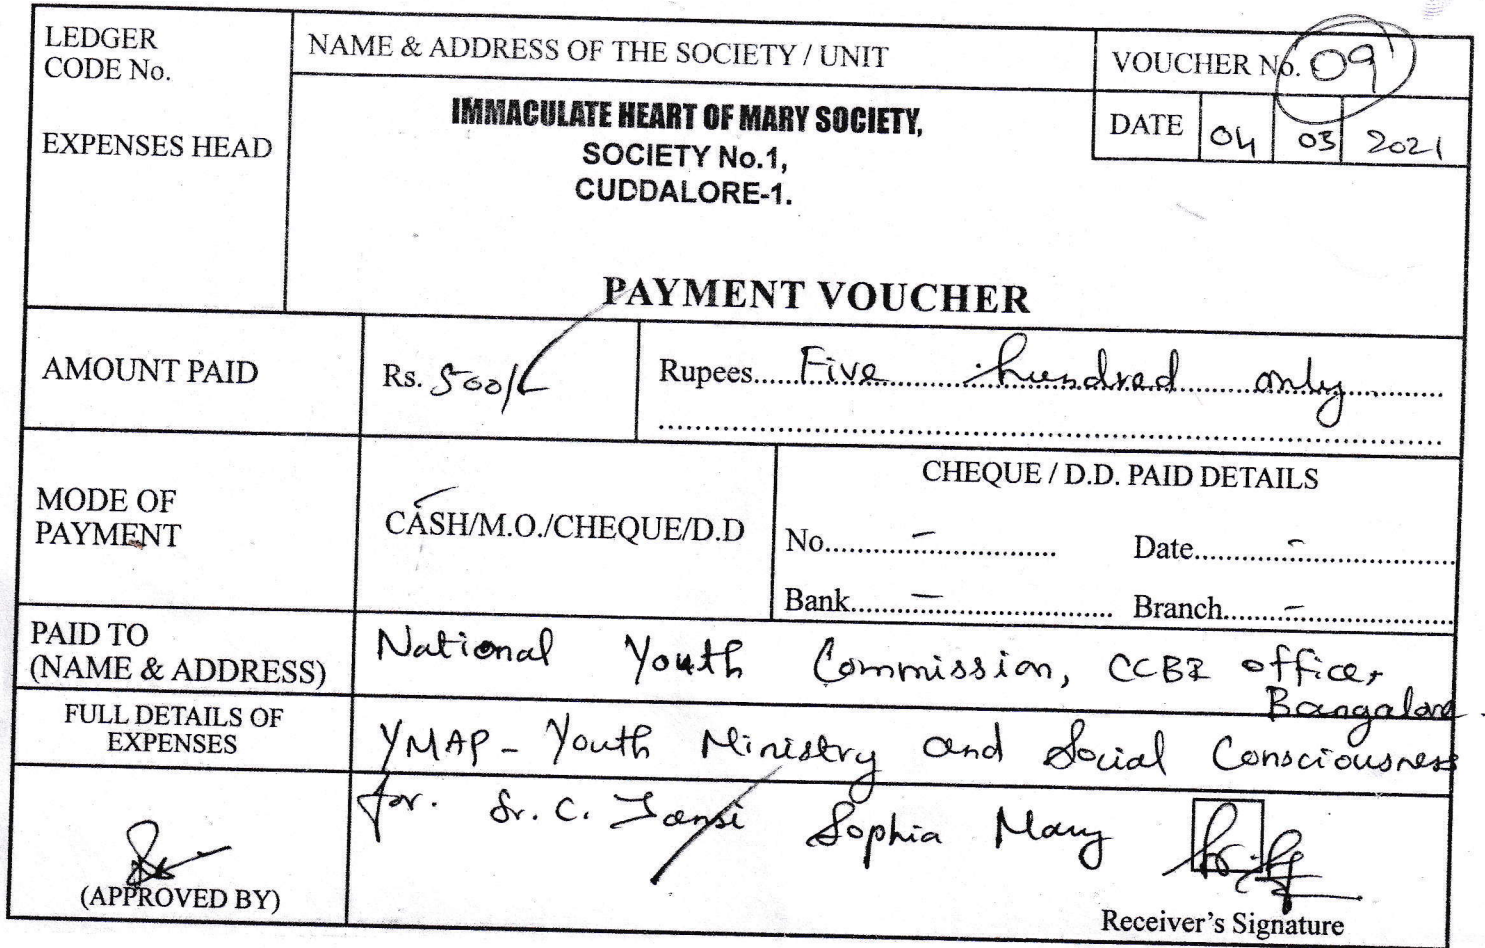 LEDGER
CODE No.
EXPENSES HEAD
NAME & ADDRESS OF THE SOCIETY / UNIT
IMMACULATE HEART OF MARY SOCIETY,
SOCIETY No.1,
CUDDALORE-1.
VOUCHER No. 09
DATE 04 03 2021
PAYMENT VOUCHER
AMOUNT PAID
Rs. 500/-
Rupees.... Five hundred only
MODE OF
PAYMENT
CASH/M.O./CHEQUE/D.D
CHEQUE / D.D. PAID DETAILS
No..... - Date..... -
Bank..... - Branch..... -
PAID TO
(NAME & ADDRESS)
National Youth Commission, CCBI office,
Bangalore.
FULL DETAILS OF
EXPENSES
YMAP - Youth Ministry and Social Consciousness
for. Sr. C. Jansi Sophia Mary
(APPROVED BY)
Receiver's Signature